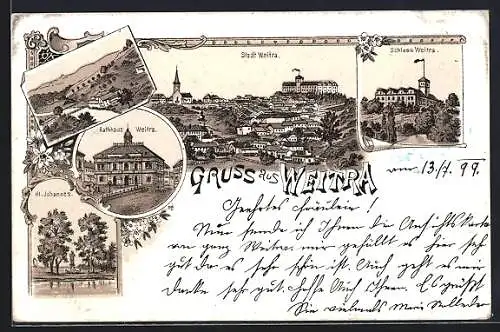 Stadt Weitra.
Schloss Weitra.
Rathhaus Weitra.
Hl. Johannes.
GRUSS aus WEITRA
am 13/7. 99.
Geehrtes Fräulein!
Nun sende ich Ihnen die Ansichtskarte
von ganz Weitra mir gefällt es hier sehr
gut da es sehr schön ist. Auch geht es mir
danke sehr gut. hoffe Auch Ihnen. Es grüsst
Sie vielmals